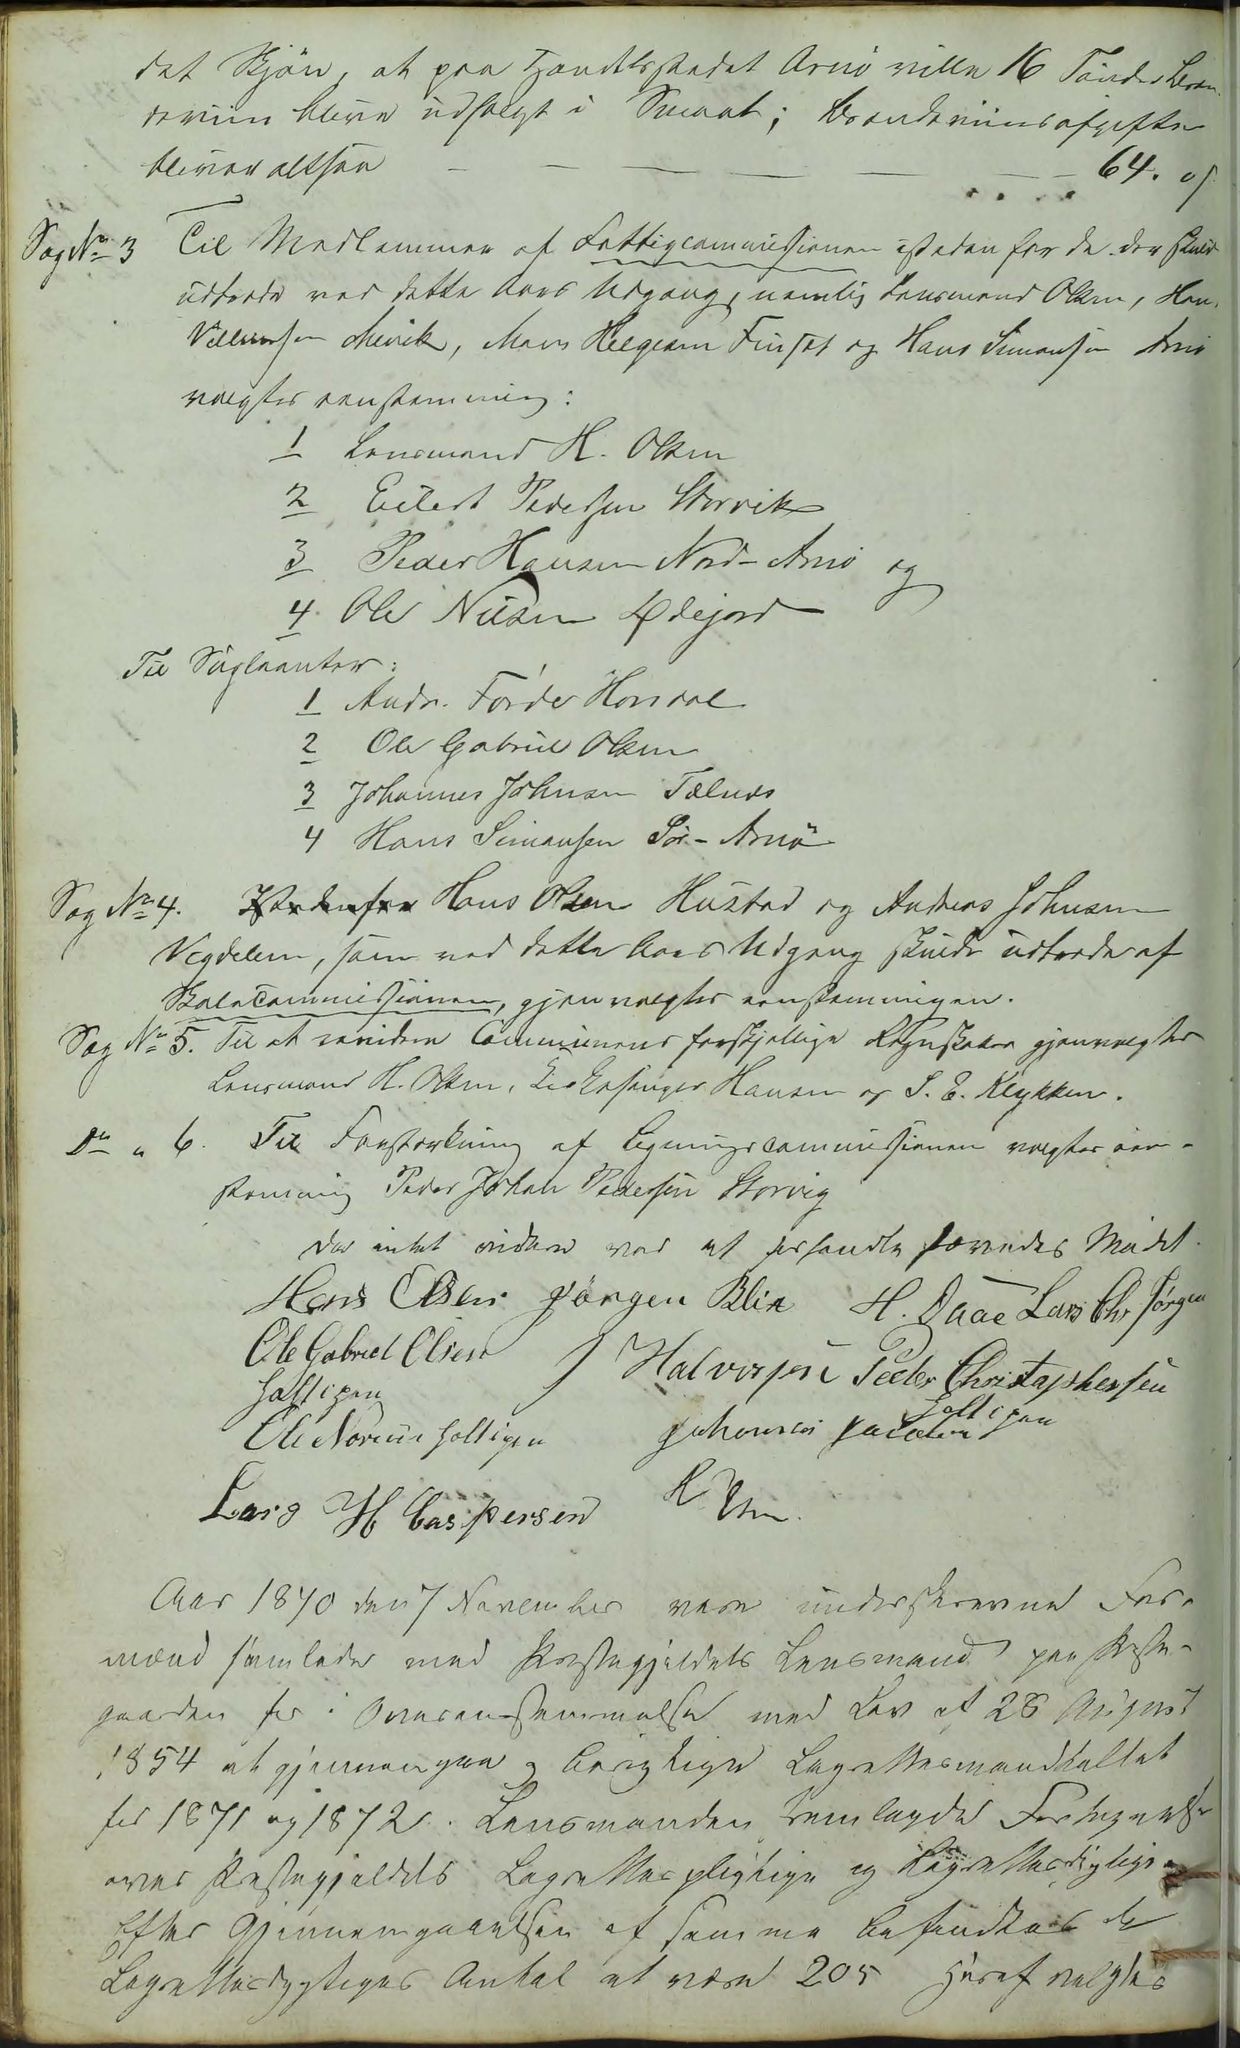 det Skjøn, at paa Handelsstedet Arnø ville 16 Tønder Bræn-
deviin blive udsolgt i Smaat; Brændeviinsafgiften
bliver altsaa — — — — — 64. og
Sag No 3 Til Medlemmer af Fattigcommissionen istedenfor de der skulde
udtræde ved dette Aars Udgang, nemlig Lensmand Olsen, Han.
Villumsen Mevik, Mons Helgesen Finset og Hans Simonsen Arnø
valgtes eenstemmig:
1 Lensmand H. Olsen
2 Eilert Pedersen Storvik
3 Peder Hansen Nord-Arnø og
4 Ole Nilsen Ødejord
Til Supleanter:
1 Andr. Førder Horsdal
2 Ole Gabriel Olsen
3 Johannes Johnsen Tælnes
4 Hans Simonsen Sør-Arnø
Sag No 4. Istedenfor Hans Olsen Hustad og Andreas Johnsen
Vegdelen, som ved dette Aars Udgang skulde udtræde af
Skolecommissionen, gjenvalgtes eenstemmigen.
Sag No 5. Til at revidere Communens forskjellige Regnskaber gjenvalgtes
Lensmand H. Olsen, Kirkesanger Hansen og S. E. Klykken.
Do " 6. Til Forstærkning af Ligningscommissionen valgtes een-
stemmig Peder Johan Pedersen Storvig
Da intet videre var at forhandle hævedes Mødet.
Hans Olsen Jørgen Blix H. Daae Lars Chr Jørgen
Ole Gabriel Olsen J Halvorsen Peder Christophersen
holdt i pen holdt i pen
Ole Norum holdt i pen Johannes
Lars H Caspersen H Olsen.
Aar 1870 den 7 November vare underskrevne For-
mænd samlede med Præstegjeldets Lensmand paa Præste-
gaarden for i Overeensstemmelse med Lov af 28 August
1854 at gjennemgaa og berigtige Lagrettesmandtallet
for 1871 og 1872. Lensmanden fremlagde Fortegnelse
over Præstegjeldets Lagrettespligtige og Lagrettesdygtige.
Efter Gjennemgaaelsen af samme befandtes de
Lagrettesdygtiges Antal at være 205 Heraf valgtes